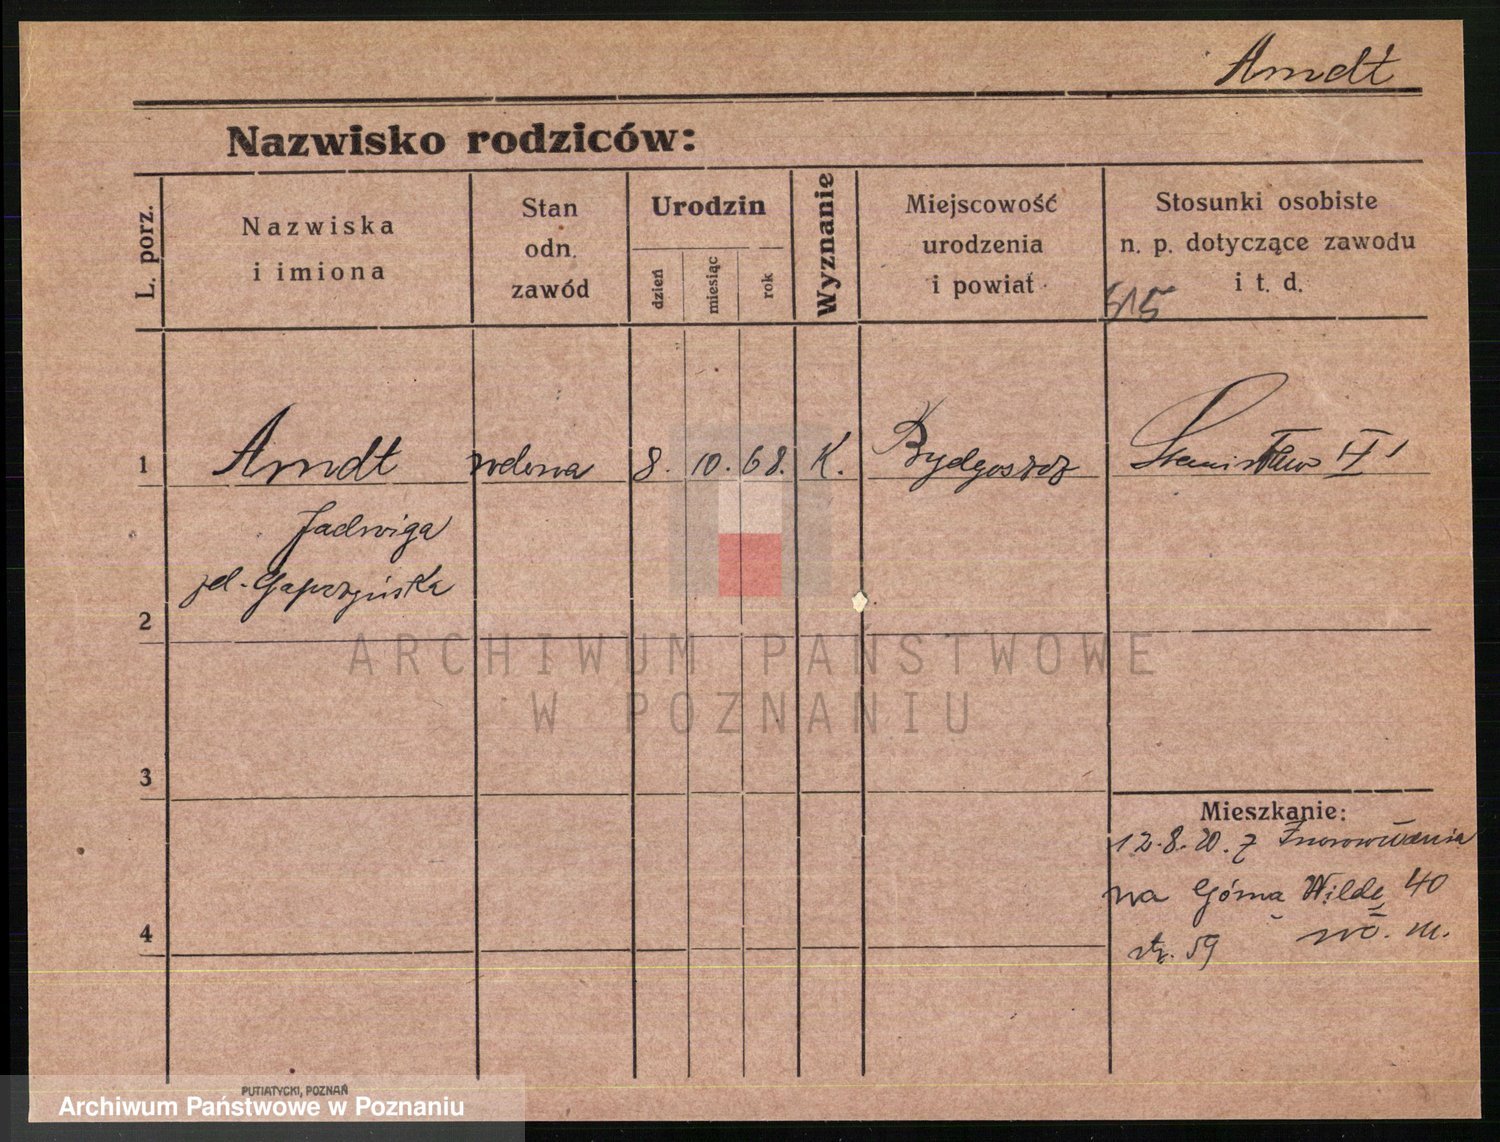 Arndt
Nazwisko rodziców:
L. porz.
Nazwiska
i imiona
Stan
odn.
zawód
Urodzin
dzień
miesiąc
rok
Wyznanie
Miejscowość
urodzenia
i powiat
Stosunki osobiste
n. p. dotyczące zawodu
i t. d.
515
1 Arndt wdowa 8. 10. 68. K. Bydgoszcz
Jadwiga
2
3
4
Mieszkanie:
12.8.20. z
na Górna Wilde 40
str. 59
ARCHIWUM PAŃSTWOWE
W POZNANIU
PUTIATYCKI, POZNAŃ
Archiwum Państwowe w Poznaniu